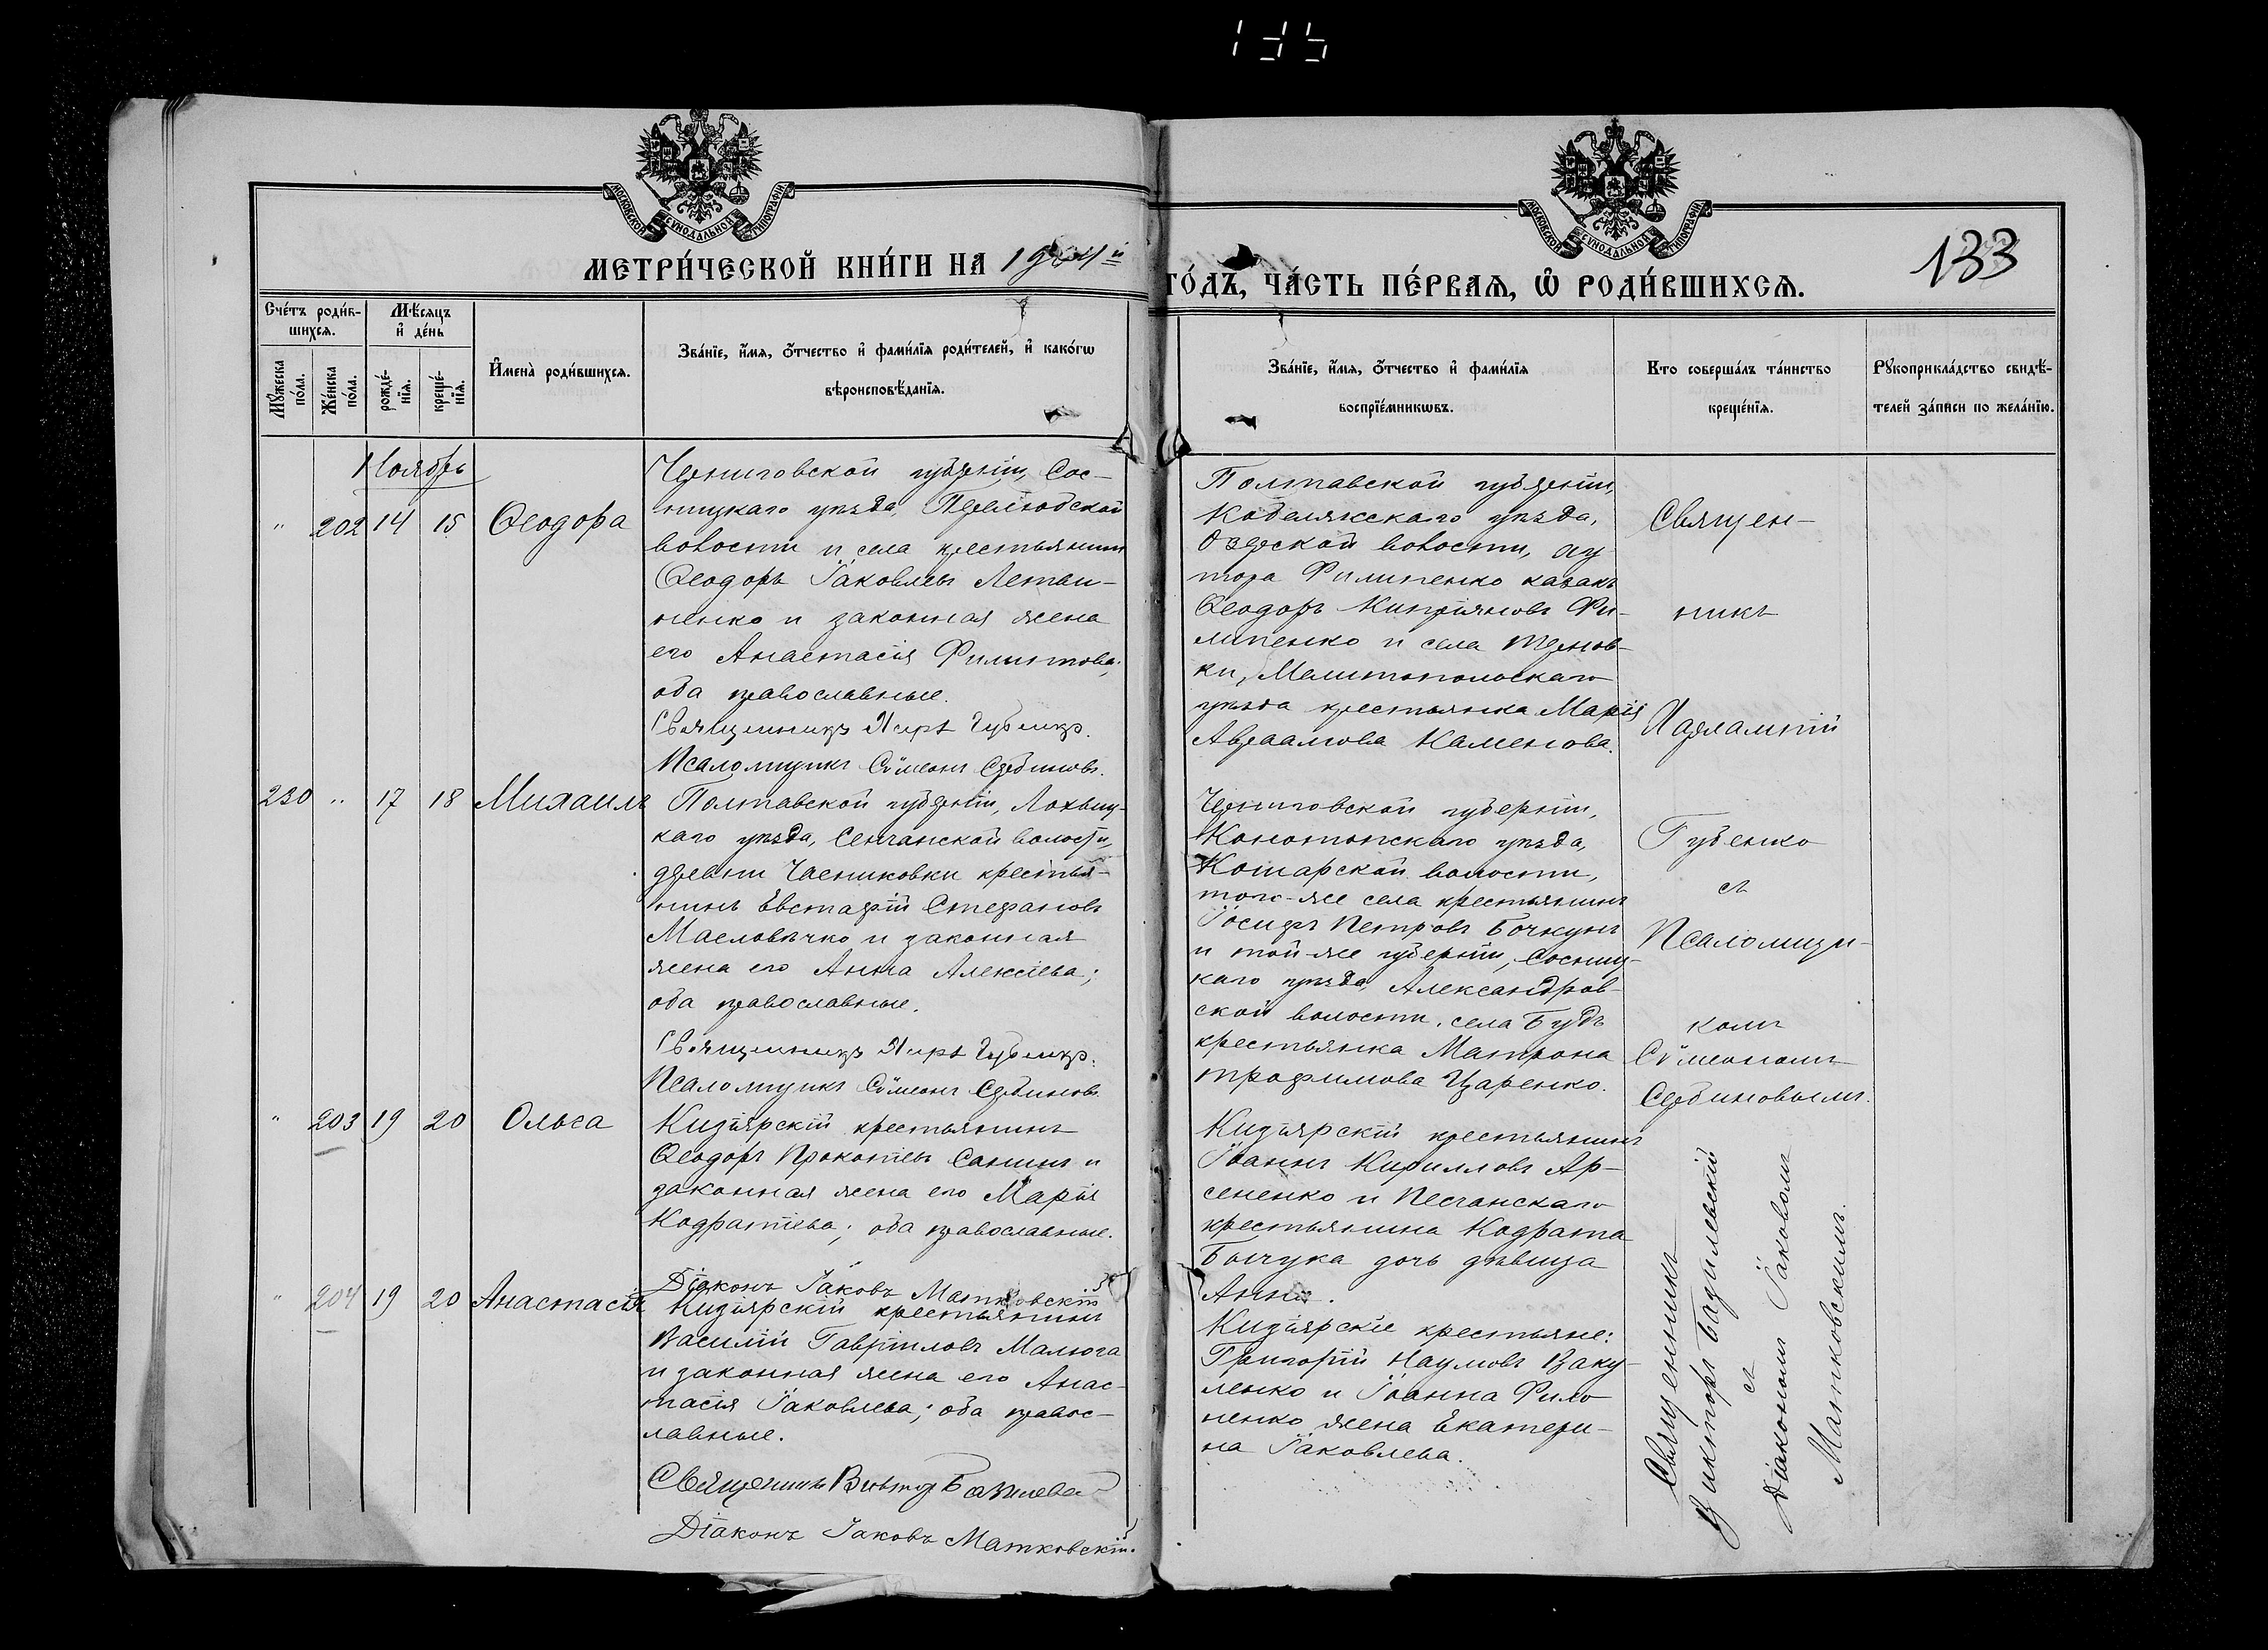 135
МОСКОВСКОЙ СѴНОДАЛЬНОЙ ТИПОГРАФІИ
МОСКОВСКОЙ СѴНОДАЛЬНОЙ ТИПОГРАФІИ
МЕТРИ́ЧЕСКОЙ КНИ́ГИ НА 19 4й
ГО́ДЪ, ЧА́СТЬ ПЕ́РВАѦ, Ѡ҆ РОДИ́ВШИХСѦ.
133
Сче́тъ роди́в-
шихсѧ.
Мꙋ́жеска по́ла.
Же́нска по́ла.
Мѣ́сѧцъ
и҆ де́нь
рожде́-
нїѧ.
креще́-
нїѧ.
И҆мена̀ роди́вшихсѧ.
Зва́нїе, и҆́мѧ, ѻ҆́тчество и҆ фами́лїѧ роди́телей, и҆ како́гѡ
вѣроисповѣ́данїѧ.
Зва́нїе, и҆́мѧ, ѻ҆́тчество и҆ фами́лїѧ
воспрїе́мникѡвъ.
Кто соверша́лъ та́инство
креще́нїѧ.
Рꙋкоприкла́дство свидѣ́-
телей за́писи по жела́нїю.
Ноябрь
" 202 14 15 Ѳеодора
Черниговской губерніи, Сос-
ницкаго уѣзда, Перелюбской
волости и села крестьянинъ
Ѳеодоръ Іаковлевъ
ненко и законная жена
его Анастасія Филиппова;
оба православные.
Священникъ Харл. Губенко.
Псаломщикъ Сѵмеонъ Сербиновъ.
Полтавской губерніи,
Кобелякскаго уѣзда,
Озерской волости, ху-
тора Филипенко казакъ
Ѳеодоръ Кипріановъ Фи-
липенко и села Тернов-
ки, Мелитопольскаго
уѣзда крестьянка Марія
Авраамова Каменова.
230 " 17 18 Михаилъ
Полтавской губерніи, Лохвиц-
каго уѣзда, Сенчанской волости,
деревни Чаениковки крестья-
нинъ Евстафій Стефановъ
Масловѣчко и законная
жена его Анна Алексіева;
оба православные.
Священникъ Харл. Губенко.
Псаломщикъ Сѵмеонъ Сербиновъ.
Черниговской губерніи,
Конотопскаго уѣзда,
Кошарской волости,
того-же села крестьянинъ
Іосифъ Петровъ Бочкунъ
и той-же губерніи, Сосниц-
каго уѣзда, Александров-
ской волости, села Будъ
крестьянка Матрона
Трофимова Царенко.
Священ-
никъ
Харлампій
Губенко
съ
Псаломщи-
комъ
Сѵмеономъ
Сербиновымъ.
" 203 19 20 Ольга
Кизіярскій крестьянинъ
Ѳеодоръ Прокопіевъ Санинъ и
законная жена его Марія
Кодратіева; оба православные.
Діаконъ Іаковъ Матковскій
Кизіярскій крестьянинъ
Іоаннъ Кирилловъ Ар-
сененко и Песчанскаго
крестьянина Кодрата
Бычука дочь дѣвица
Анна.
" 204 19 20 Анастасія
Кизіярскій крестьянинъ
Василій Гавріиловъ Малюга
и законная жена его Анас-
тасія Іаковлева; оба правос-
лавные.
Священникъ Викторъ Базилевскій
Діаконъ Іаковъ Матковскій.
Кизіярскіе крестьяне:
Григорій Наумовъ Ваку-
ленко и Іоанна Фило-
ненко жена Екатери-
на Іаковлева.
Священникъ
Викторъ Базилевскій
съ
Діакономъ Іаковомъ
Матковскимъ.